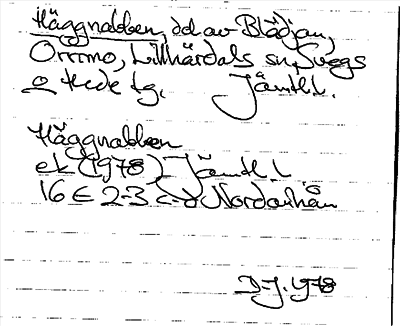 Häggnabben, del av Blädjan,
Orrmo, Lillhärdals sn, Svegs
o Hede tg. Jämtl.l.
Häggnabben
ek (1978) Jämtl.l.
16 E 2-3 c-d Nordanhån
D-J. 1978